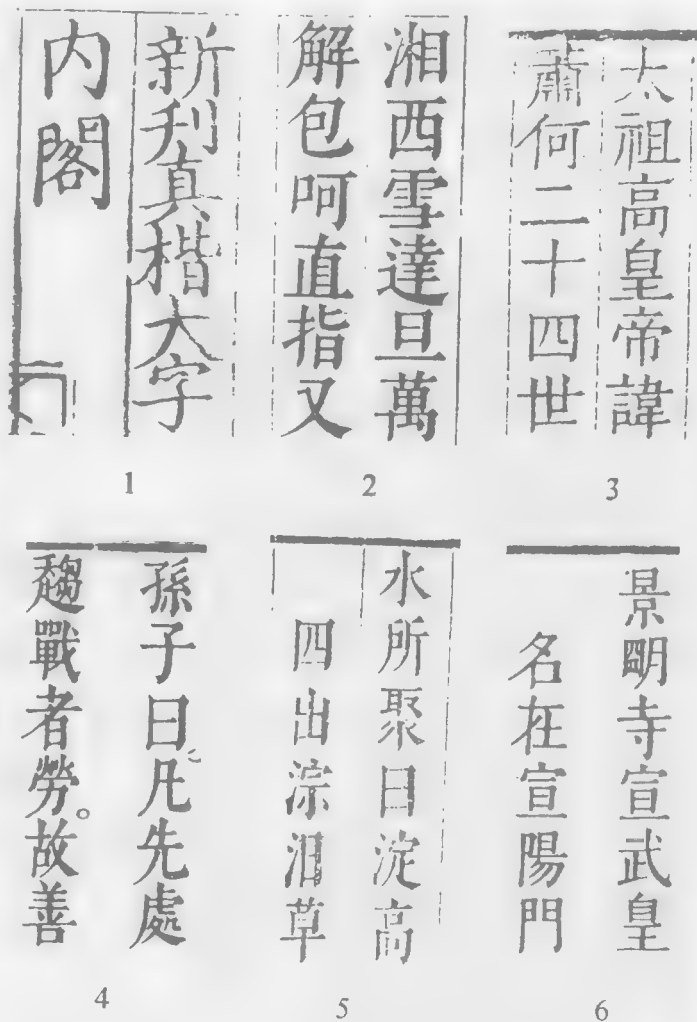 新刋真楷大字
内閣
1
湘西雪達旦萬
解包呵直指又
2
太祖高皇帝諱
蕭何二十四世
3
孫子曰凡先處
趨戰者勞。故善
4
水所聚曰淀高
四出淙泪草
5
景眀寺宣武皇
名在宣陽門
6